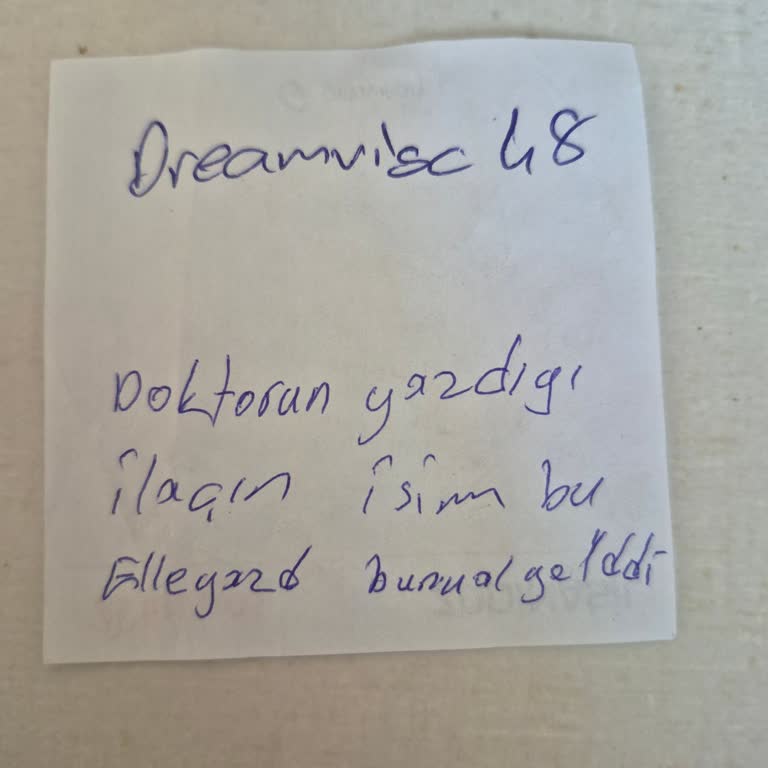 Dreamvisc 48
Doktorun yazdıgı
ilaçın isim bu
Elleyazd bunual geldddi